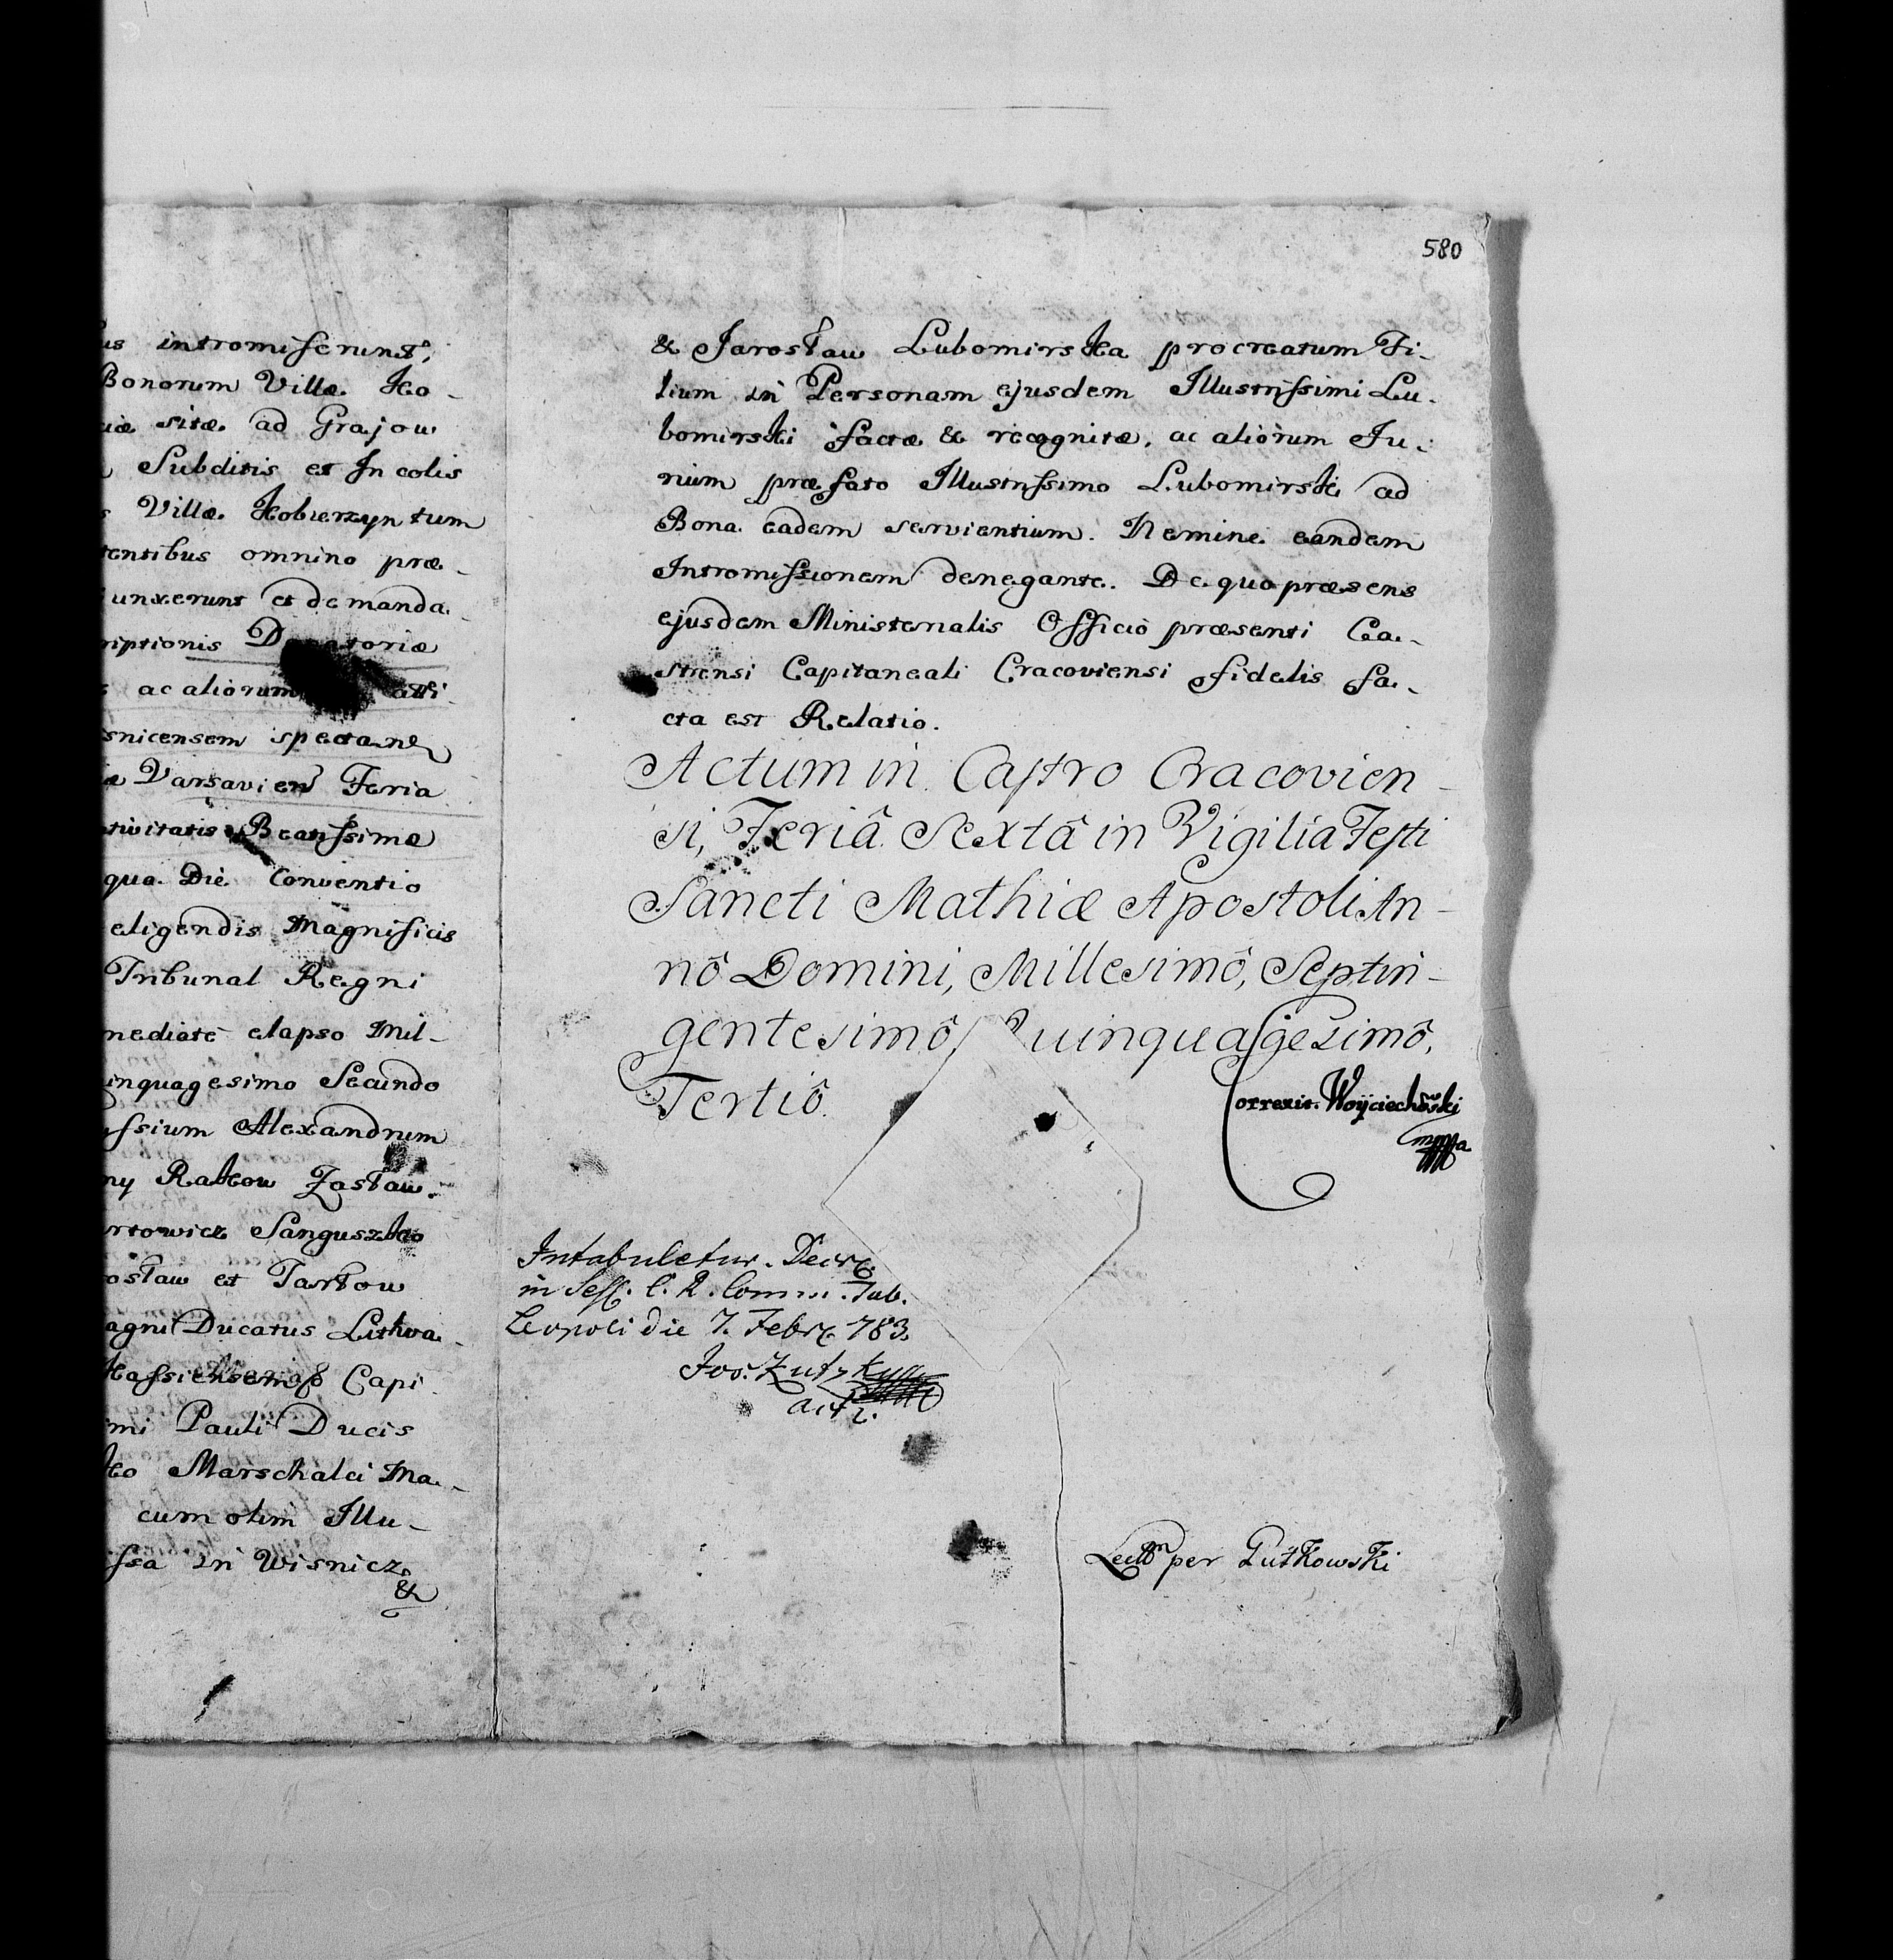 us intromiserunt,
Bonorum Villæ Ko-
iæ sitæ ad Grajow
Subditis et Incolis
s Villæ Kobierzyn tum
tentibus omnino præ-
unxerunt et demanda-
riptionis toriæ
s ac aliorum
snicensem spectan
æ Varsavien Feria
tivitatis Beatissimæ
qua Die Conventio
eligendis Magnificis
Tribunal Regni
mediate elapso Mil-
inquagesimo Secundo
ssium Alexandrum
ny Rakow Zasław
rtowicz Sanguszko
osław et Tarkow
agni Ducatus Lithva-
kassiensem & Capi-
mi Pauli Ducis
ko Marschalci Ma-
cum olim Illu-
issa in Wisnicz
&
580
& Jarosław Lubomirska procreatum Fi-
lium in Personam ejusdem Illustrissimi Lu-
bomirski factæ & recognitæ, ac aliorum Ju-
rium præfato Illustrissimo Lubomirski ad
Bona eadem servientium. Nemine eandem
Intromissionem denegante. De quo præsens
ejusdem Ministerialis Officio præsenti Ca-
strensi Capitaneali Cracoviensi fidelis fa-
cta est Relatio.
Actum in Castro Cracovien-
si, Feriâ Sextâ in Vigilia Festi
Sancti Mathiæ Apostoli An-
nô Domini, Millesimô, Septin-
gentesimô, Quinquagesimô,
Tertiô.
Correxit Woyciechowski
mppa
Intabuletur. Decr.
in Sess. C. R. Comm. Tab.
Leopoli die 7. Febr. 783.
Jos.
Lectm per Gutkowski